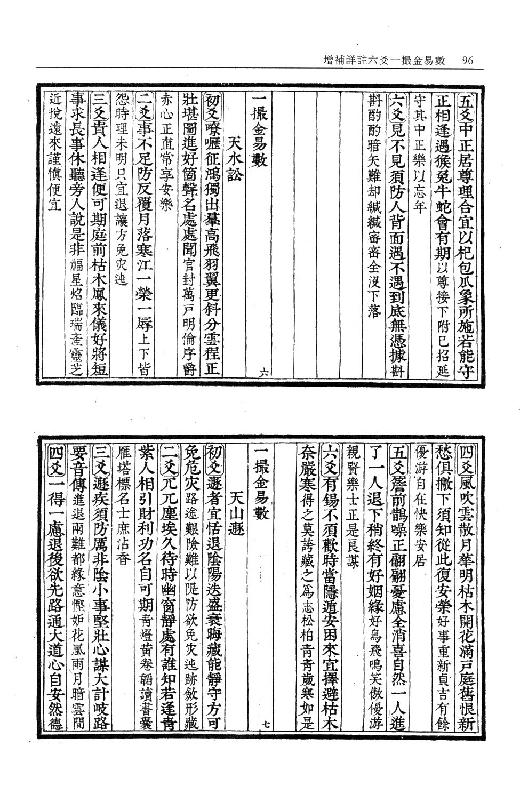 增補詳註六爻一撮金易數　96
五爻中正居尊理合宜以杞包瓜象所施若能守
正相逢遇猴兔牛蛇會有期以尊接下附巳招延
守其中正樂以忘年
六爻見不見須防人背面遇不遇到底無憑據斟
斟酌酌暗矢難却緘緘審審全没下落
一撮金易數　六
天水訟
初爻嘹嚦征鴻獨出羣高飛羽翼更斜分雲程正
壯堪圖進好箇聲名處處聞官封萬戸明倫序爵
赤心正直常享安樂
二爻事不足防反覆月落寒江一榮一辱上下皆
怨時理未明只宜退讓方免灾迍
三爻貴人相逢便可期庭前枯木鳳來儀好將短
事求長事休聽旁人說是非福星焰臨瑞產靈芝
近悅遠來謹慎便宜
四爻風吹雲散月華明枯木開花滿戸庭舊恨新
愁俱撇下須知從此復安榮好事重新貞吉有餘
優游自在快樂安居
五爻簷前鵲噪正翩翩憂慮全消喜自然一人進
了一人退下稍終有好姻緣好鳥飛鳴笑傲優游
親賢樂士正是良謀
六爻有錫不須歡時當隱遁安困來宜擇避枯木
奈嚴寒得之莫誇藏之爲志松柏青青歲寒如是
一撮金易數　七
天山遯
初爻遯者宜恬退陰陽迭盛衰晦藏能靜守方可
免危灾路途艱險難以隄防欲免灾迍跡斂形藏
二爻兀兀塵埃久待時幽窗靜處有誰知若逢青
紫人相引財利功名自可期青燈黃卷韜讀書囊
雁塔標名士庶沾香
三爻遯疾須防厲非陰小事堅壯心謀大計岐路
要音傳進退兩難都緣意慳妬花風雨月暗雲間
四爻一得一慮退後欲先路通大道心自安然德